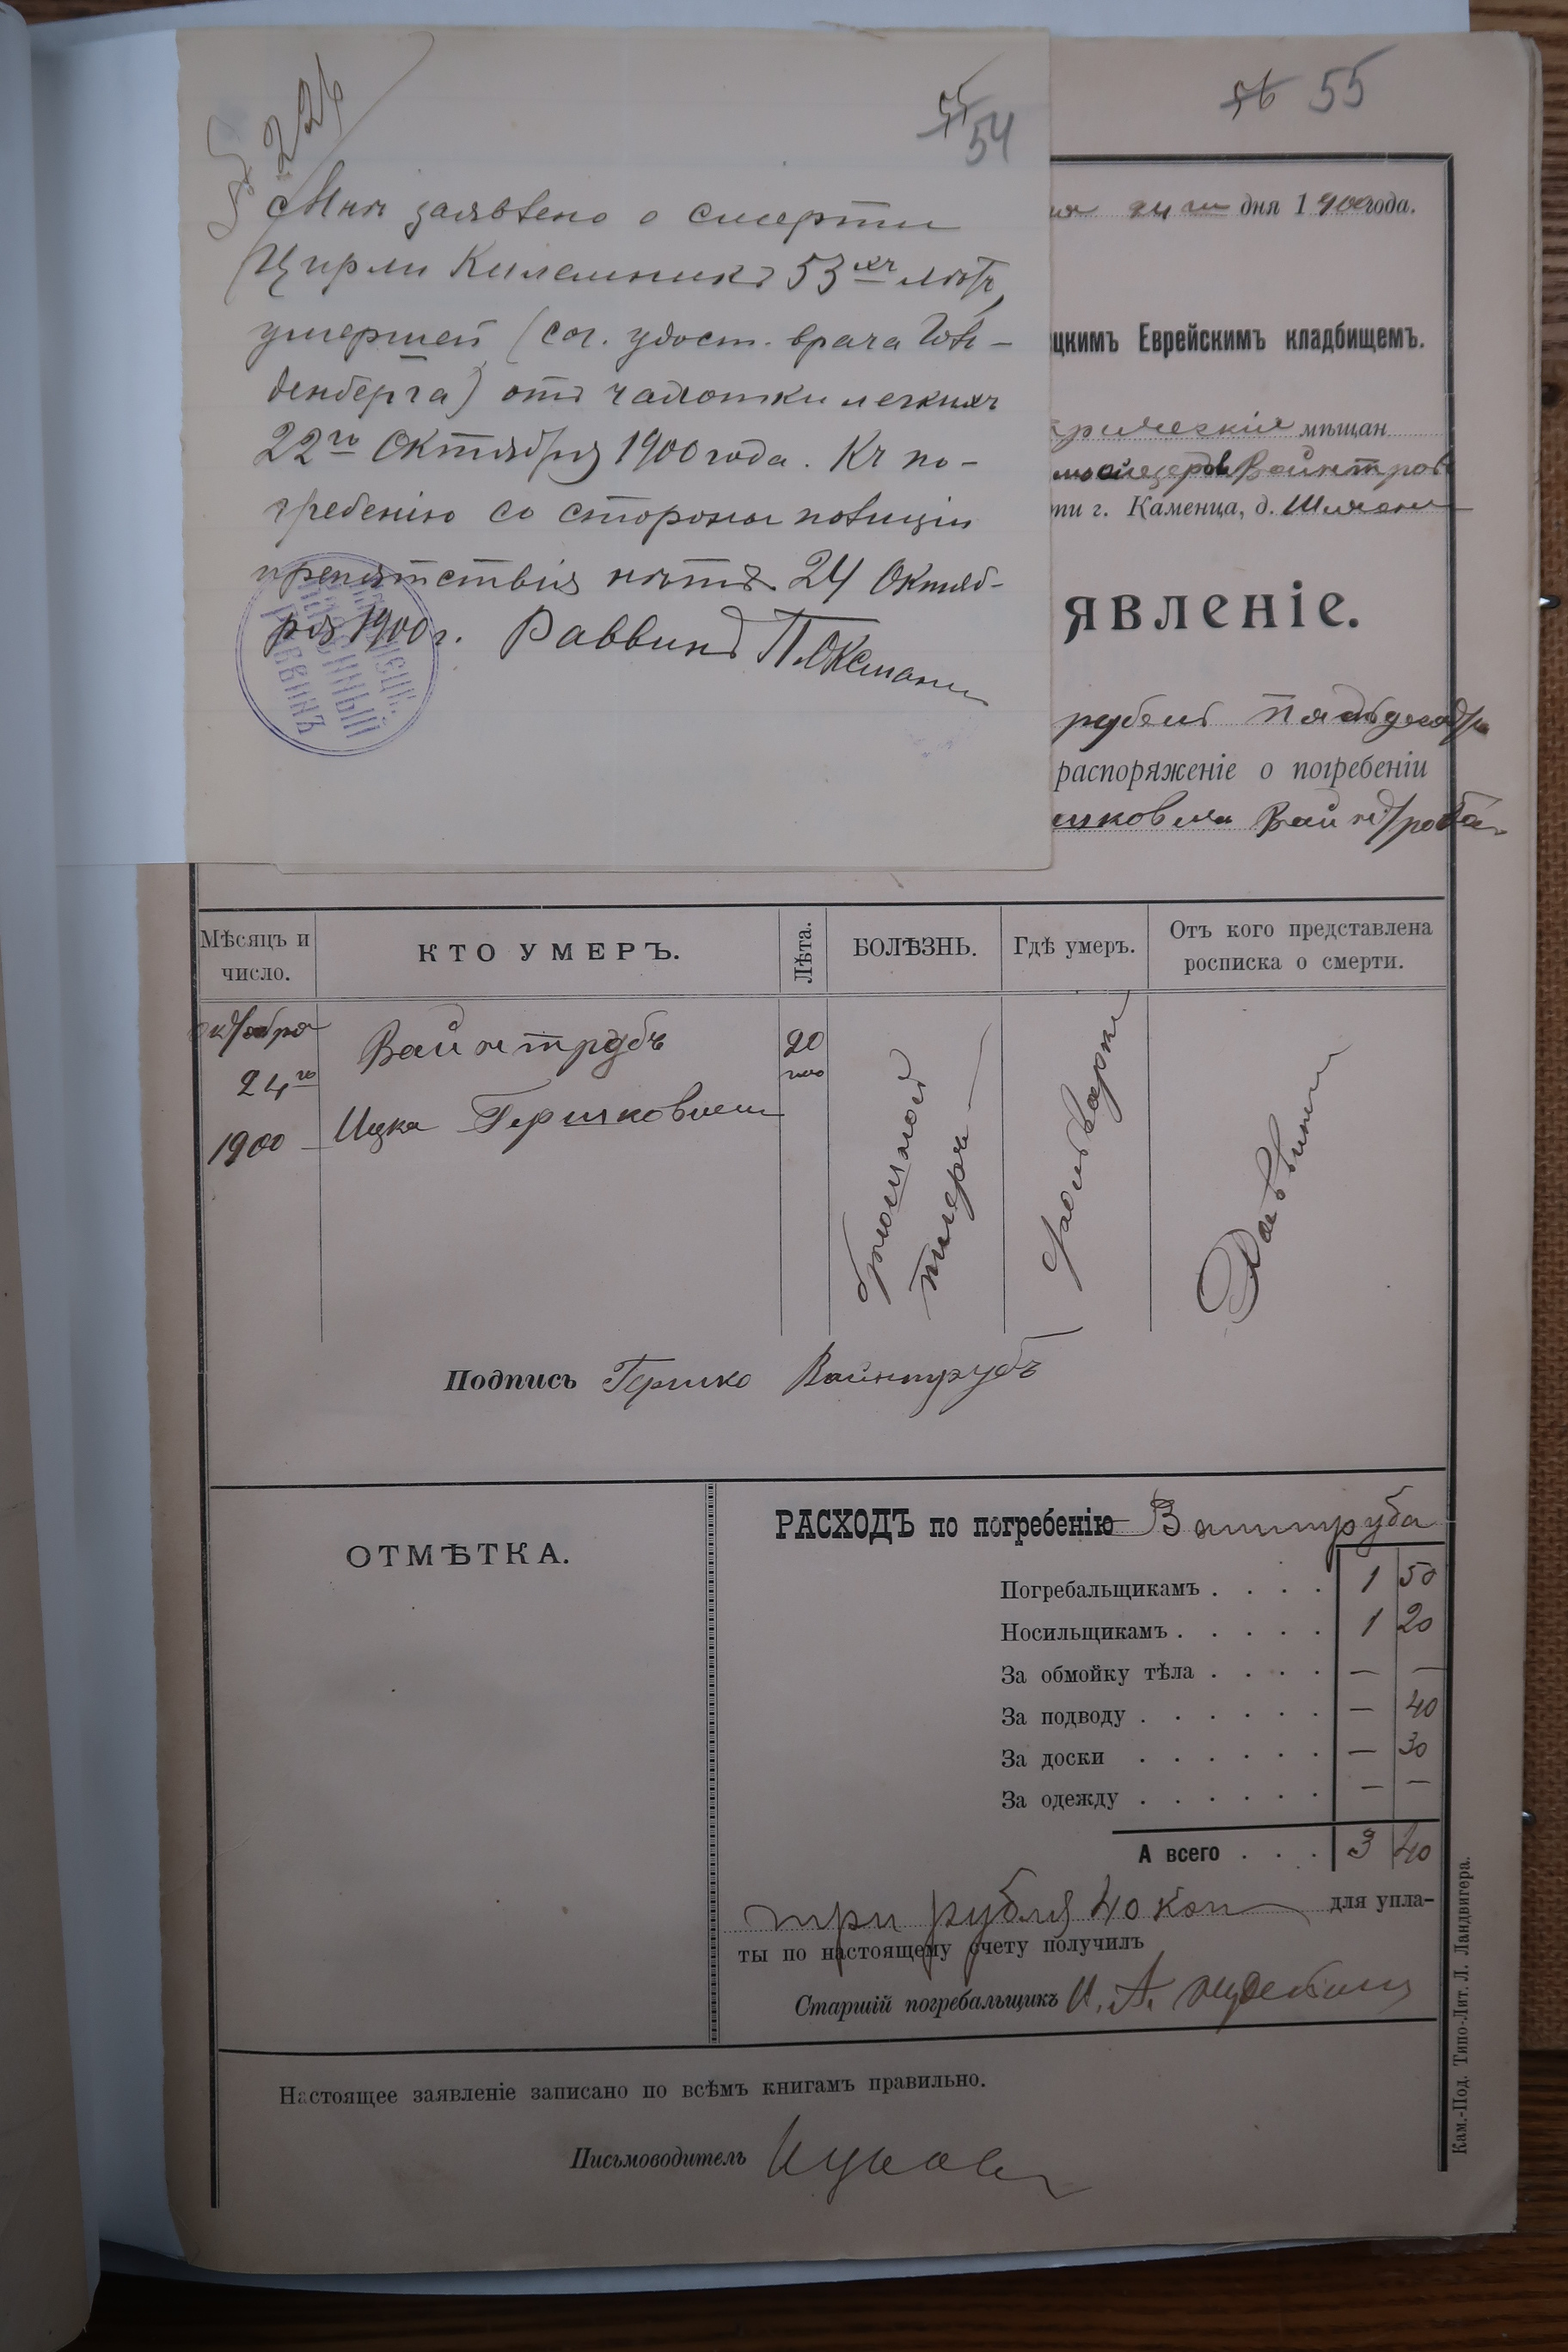 226
55
54
Мнѣ заявлено о смерти
Цирли Килешникъ 53хъ лѣтъ,
умершей (сог. удост. врача Голь-
денберга) отъ чахотки легкихъ
22го Октября 1900 года. Къ по-
гребенію со стороны полиціи
препятствія нѣтъ. 24 Октяб-
ря 1900 г. Раввинъ П. Оксманъ
КАЗЕННЫЙ
РАВВИНЪ
56 55
24 го дня 1900 года.
цкимъ Еврейскимъ кладбищемъ.
мѣщан
Вайнтроб
ти г. Каменца, д.
явленіе.
рубель пятьдесят
распоряженіе о погребеніи
шковича Вайнтроба
Мѣсяцъ и число.
КТО УМЕРЪ.
Лѣта.
БОЛѢЗНЬ.
Гдѣ умеръ.
Отъ кого представлена росписка о смерти.
октября
24го
1900
Вайнтрубъ
Ицка Гершкович
20
брюшной
тифъ
фольварки
Раввин
Подпись Гершко Вайнтрубъ
ОТМѢТКА.
РАСХОДЪ по погребенію Вайнтруба
Погребальщикамъ . . . . 1 50
Носильщикамъ . . . . . 1 20
За обмойку тѣла . . . . — —
За подводу . . . . . . — 40
За доски . . . . . . — 30
За одежду . . . . . . — —
А всего . . . 3 40
три рубля 40 коп для упла-
ты по настоящему счету получилъ
Старшій погребальщикъ И. А.
Настоящее заявленіе записано по всѣмъ книгамъ правильно.
Письмоводитель
Кам.-Под. Типо-Лит. Л. Ландвигера.